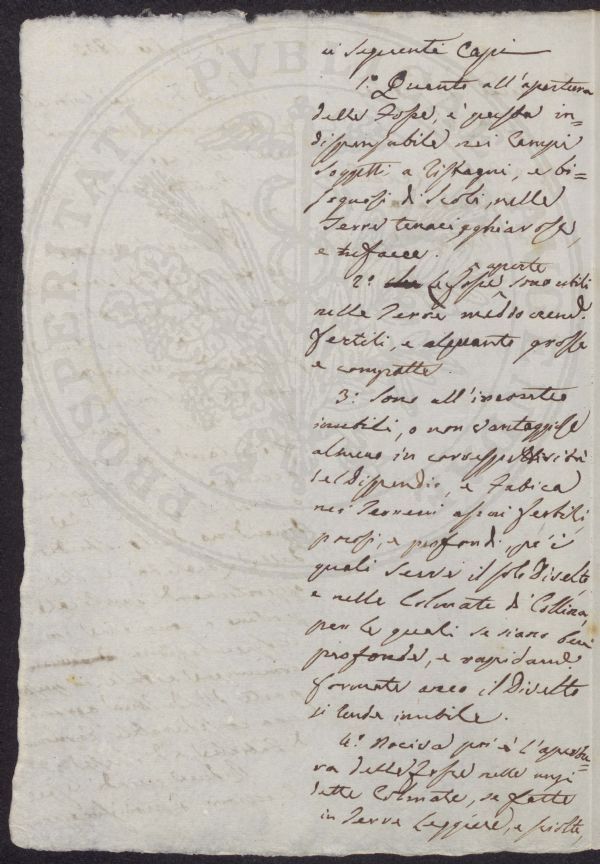 ai seguenti Capi
1.º Quanto all'apertura
delle Fosse, è questa in=
dispensabile nei Campi
soggetti a ristagni, e bi=
sognosi di scoli, nelle
Terre tenaci, ghiarose,
e tufacee.
2.º Le Fosse aperte sono utili
nelle Terre mediocremᵉ.
fertili, e alquanto grosse
e compatte.
3.º Sono all'incontro
inutili, o non vantaggiose
almeno in corrispettività
del Dispendio, e Fatica
nei Terreni assai fertili,
e profondi, pe' i
quali serve il solo Divelto,
e nelle Colmate di Collina,
per le quali se siano ben
profonde, e rapidamᵉ.
formate anco il Divelto
si rende inutile.
4.º Nociva poi è l'apertu=
ra delle Fosse nelle
dette Colmate, se fatte
in Terre leggiere, e sciolte,
PUBLICAE
PROSPERITATI